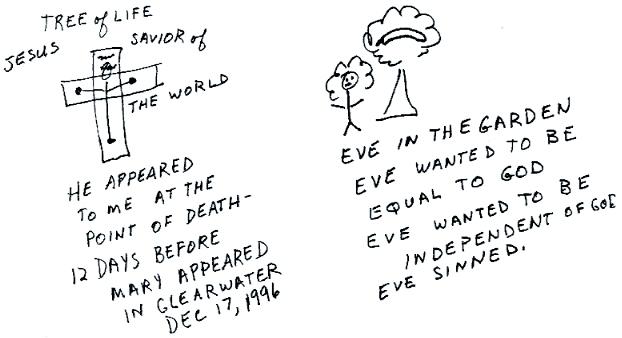 TREE of LIFE
JESUS
SAVIOR of
THE WORLD
HE APPEARED
TO ME AT THE
POINT OF DEATH-
12 DAYS BEFORE
MARY APPEARED
IN CLEARWATER
DEC 17, 1996
EVE IN THE GARDEN
EVE WANTED TO BE
EQUAL TO GOD
EVE WANTED TO BE
INDEPENDENT OF GOD
EVE SINNED.